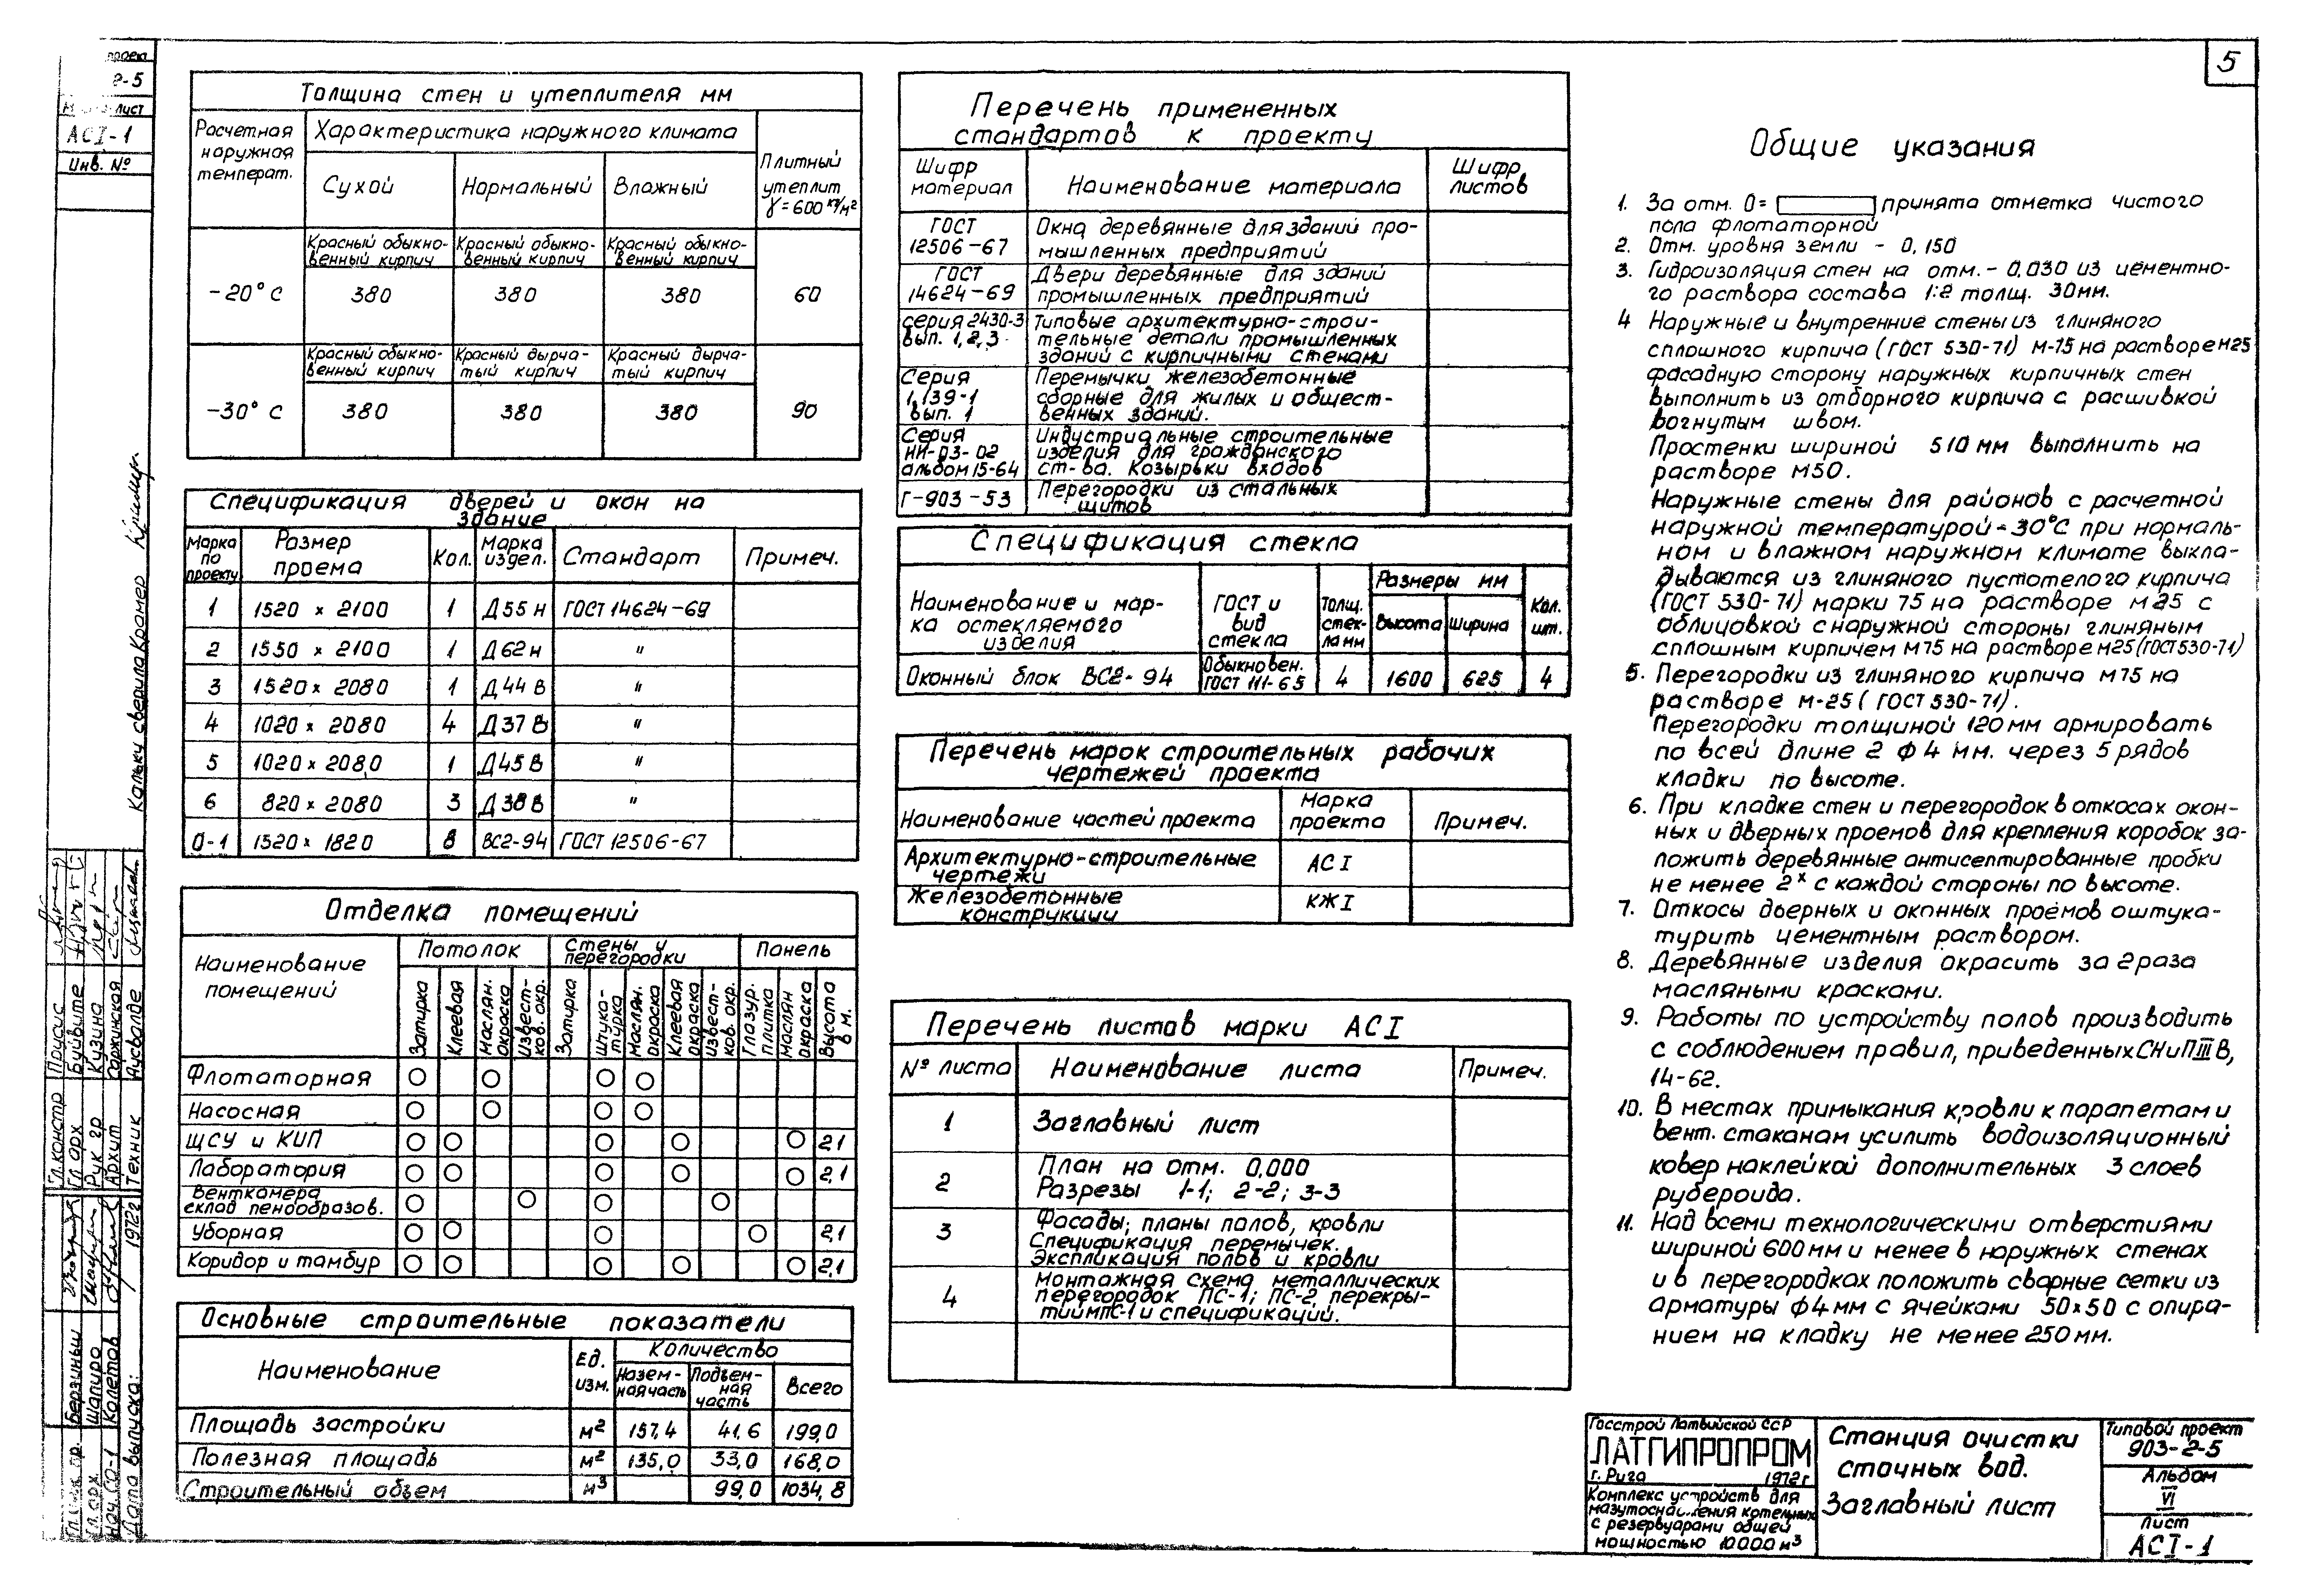 5
проект
2-5
АСІ-1
Инв. №
Толщина стен и утеплителя мм
Расчетная наружная температ.
Характеристика наружного климата
Сухой Нормальный Влажный
Плитный утеплит γ=600 кг/м²
Красный обыкно- Красный обыкно- Красный обыкно-
венный кирпич венный кирпич венный кирпич
-20° С 380 380 380 60
Красный обыкно- Красный дырча- Красный дырча-
венный кирпич тый кирпич тый кирпич
-30° С 380 380 380 90
Спецификация дверей и окон на
здание
Марка по проекту Размер проема Кол. Марка издел. Стандарт Примеч.
1 1520 x 2100 1 Д55н ГОСТ 14624-69
2 1550 x 2100 1 Д62н "
3 1520 x 2080 1 Д44в "
4 1020 x 2080 4 Д37в "
5 1020 x 2080 1 Д45в "
6 820 x 2080 3 Д38в "
О-1 1520 x 1820 8 ВС2-94 ГОСТ 12506-67
Отделка помещений
Наименование помещений
Потолок Стены и перегородки Панель
Затирка Клеевая Маслян. окраска Известков. окр. Затирка Штукатурка Маслян. окраска Клеевая окраска Известков. окр. Глазур. плитка Маслян окраска Высота в м.
Флотаторная
Насосная
ЩСУ и КИП 2,1
Лаборатория 2,1
Венткамера
склад пенообразов.
Уборная 2,1
Коридор и тамбур 2,1
Основные строительные показатели
Наименование Ед. изм. Количество
Назем- ная часть Подзем- ная часть Всего
Площадь застройки м² 157,4 41,6 199,0
Полезная площадь м² 135,0 33,0 168,0
Строительный объем м³ 99,0 1034,8
Перечень примененных
стандартов к проекту
Шифр материал Наименование материала Шифр листов
ГОСТ 12506-67 Окна деревянные для зданий про-
мышленных предприятий
ГОСТ 14624-69 Двери деревянные для зданий
промышленных предприятий
серия 2430-3 Типовые архитектурно-строи-
вып. 1,2,3 тельные детали промышленных
зданий с кирпичными стенами
Серия Перемычки железобетонные
1,139-1 сборные для жилых и общест-
вып. 1 венных зданий.
Серия Индустриальные строительные
ИИ-03-02 изделия для гражданского
альбом 15-64 ст-ва. Козырьки входов
Г-903-53 Перегородки из стальных
щитов
Спецификация стекла
Наименование и мар-
ка остекляемого
изделия
ГОСТ и вид стекла Толщ. стек- ла мм Размеры мм Высота Ширина Кол. шт.
Оконный блок ВС2-94 Обыкновен. ГОСТ 111-65 4 1600 625 4
Перечень марок строительных рабочих
чертежей проекта
Наименование частей проекта Марка проекта Примеч.
Архитектурно-строительные
чертежи АСІ
Железобетонные
конструкции КЖІ
Перечень листов марки АСІ
№ листа Наименование листа Примеч.
1 Заглавный лист
2 План на отм. 0,000
Разрезы 1-1; 2-2; 3-3
3 Фасады; планы полов, кровли
Спецификация перемычек.
Экспликация полов и кровли
4 Монтажная схема металлических
перегородок ПС-1; ПС-2, перекры-
тий МПС-1 и спецификаций.
Общие указания
1. За отм. 0= принята отметка чистого
пола флотаторной
2. Отм. уровня земли - 0,150
3. Гидроизоляция стен на отм. - 0,030 из цементно-
го раствора состава 1:2 толщ. 30мм.
4 Наружные и внутренние стены из глиняного
сплошного кирпича (ГОСТ 530-71) М-75 на растворе М25
фасадную сторону наружных кирпичных стен
выполнить из отборного кирпича с расшивкой
вогнутым швом.
Простенки шириной 510 мм выполнить на
растворе М50.
Наружные стены для районов с расчетной
наружной температурой -30°С при нормаль-
ном и влажном наружном климате выкла-
дываются из глиняного пустотелого кирпича
(ГОСТ 530-71) марки 75 на растворе М25 с
облицовкой с наружной стороны глиняным
сплошным кирпичем М75 на растворе М25 (ГОСТ 530-71)
5. Перегородки из глиняного кирпича М75 на
растворе М-25 ( ГОСТ 530-71).
Перегородки толщиной 120 мм армировать
по всей длине 2 ф 4 мм. через 5 рядов
кладки по высоте.
6. При кладке стен и перегородок в откосах окон-
ных и дверных проемов для крепления коробок за-
ложить деревянные антисептированные пробки
не менее 2х с каждой стороны по высоте.
7. Откосы дверных и оконных проёмов оштука-
турить цементным раствором.
8. Деревянные изделия окрасить за 2 раза
масляными красками.
9. Работы по устройству полов производить
с соблюдением правил, приведенных СНиП III В,
14-62.
10. В местах примыкания кровли к парапетам и
вент. стаканам усилить водоизоляционный
ковер наклейкой дополнительных 3 слоев
рубероида.
11. Над всеми технологическими отверстиями
шириной 600мм и менее в наружных стенах
и в перегородках положить сварные сетки из
арматуры ф 4 мм с ячейками 50x50 с опира-
нием на кладку не менее 250 мм.
Госстрой Латвийской ССР
ЛАТГИПРОПРОМ
г. Рига 1972г
Комплекс устройств для
мазутоснабжения котельных
с резервуарами общей
мощностью 10000 м³
Станция очистки
сточных вод.
Заглавный лист
Типовой проект
903-2-5
Альбом
VI
Лист
АСІ-1
Кальку сверила Крамер
Гл. констр Прусис
Гл арх Буйвите
Рук гр Кузина
Архит
Техник Аусвалде
Берзиньш
Гл. арх Шапиро
Нач. СО-1 Колетов
Дата выпуска: 1972г